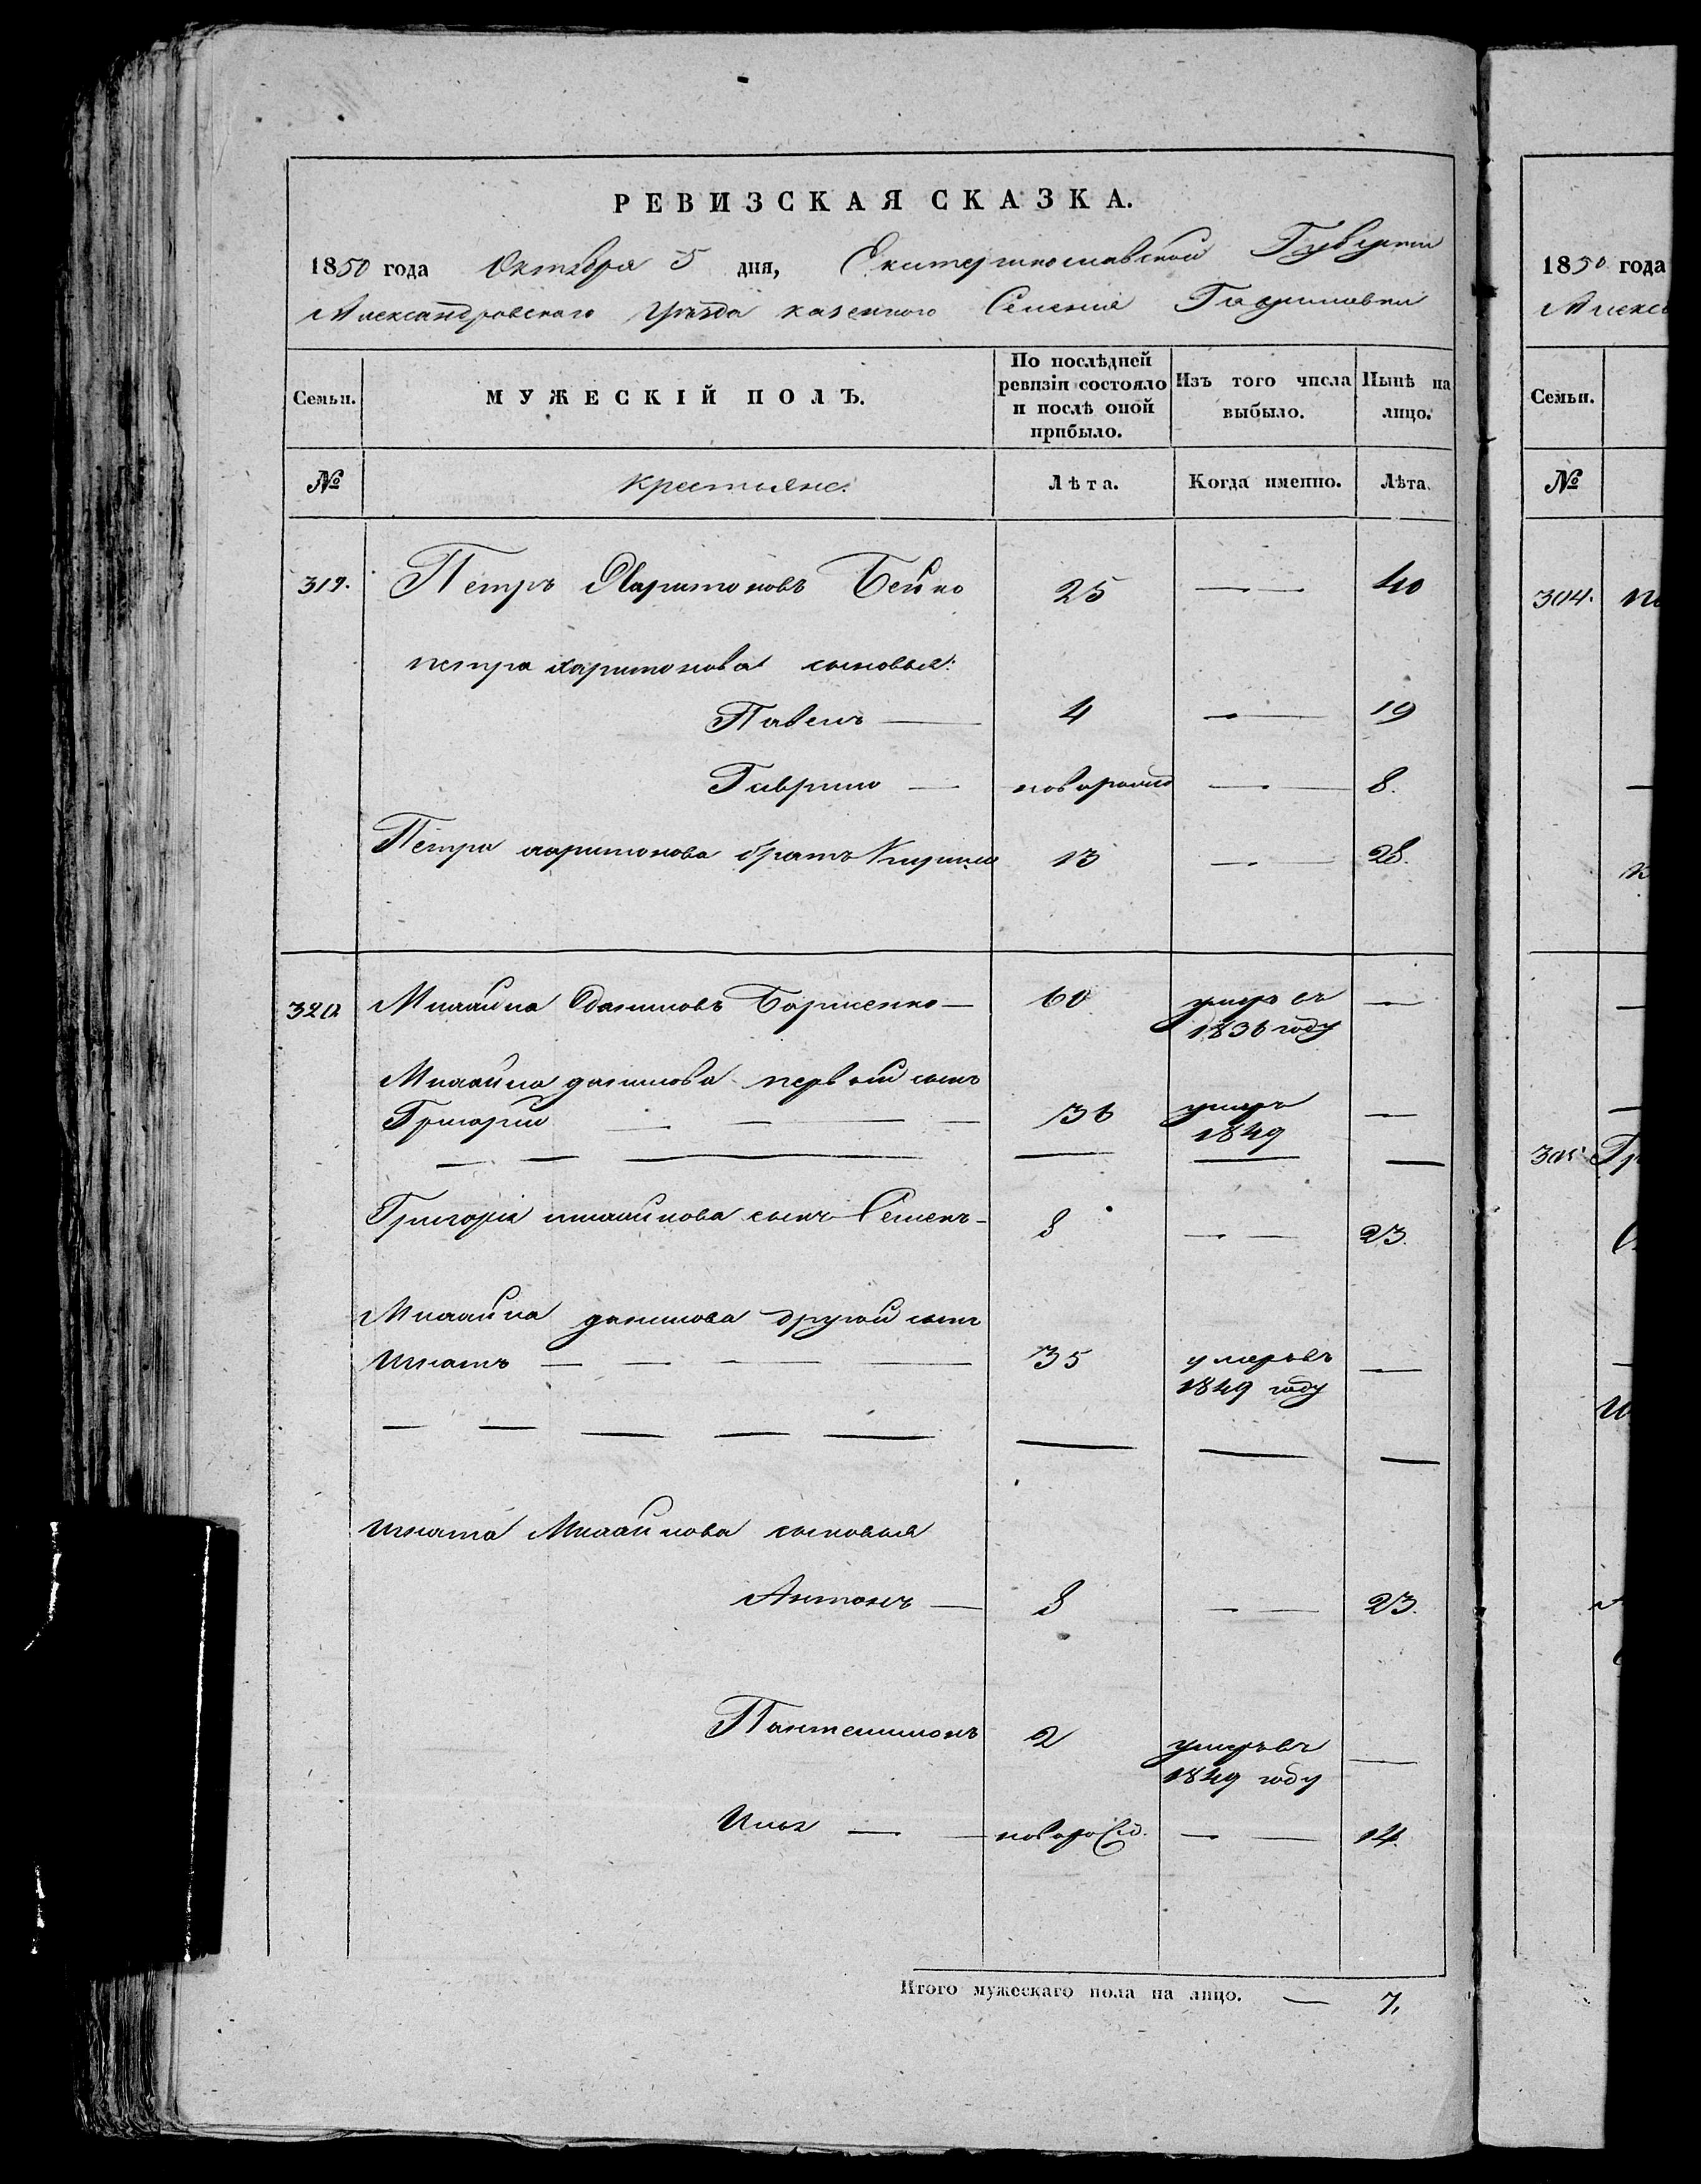 РЕВИЗСКАЯ СКАЗКА.
1850 года Октября 5 дня, Екатеринославской Губернии
Александровского уѣзда казенного Селения Гавриловки
Семьи. МУЖЕСКІЙ ПОЛЪ. По послѣдней ревизіи состояло и послѣ оной прибыло. Изъ того числа выбыло. Нынѣ на лицо.
№ крестьяне. Лѣта. Когда именно. Лѣта.
319. Петръ Харитоновъ Бейко 25 — 40
петра харитонова сыновья:
Павелъ — 4 — 19
Гаврило — новорожд — 8.
Петра харитонова братъ Кирило 13 — 28.
320 Михайла Даниловъ Борисенко — 60 умеръ въ 1836 году —
Михайла данилова первый сынъ
Григорий — 36 умеръ 1849 —
Григорія михайлова сынъ Семенъ — 8 — 23.
Михайла данилова другой сынъ
Игнатъ — 35 умеръ въ 1849 году —
Игната Михайлова сыновья
Антонъ — 8 — 23.
Пантелимонъ 2 умеръ въ 1849 году —
Илья — новорожд. — 14.
Итого мужескаго пола на лицо. — 7.
1850 года
Алекса
Семьи.
№
304.
305. Гр